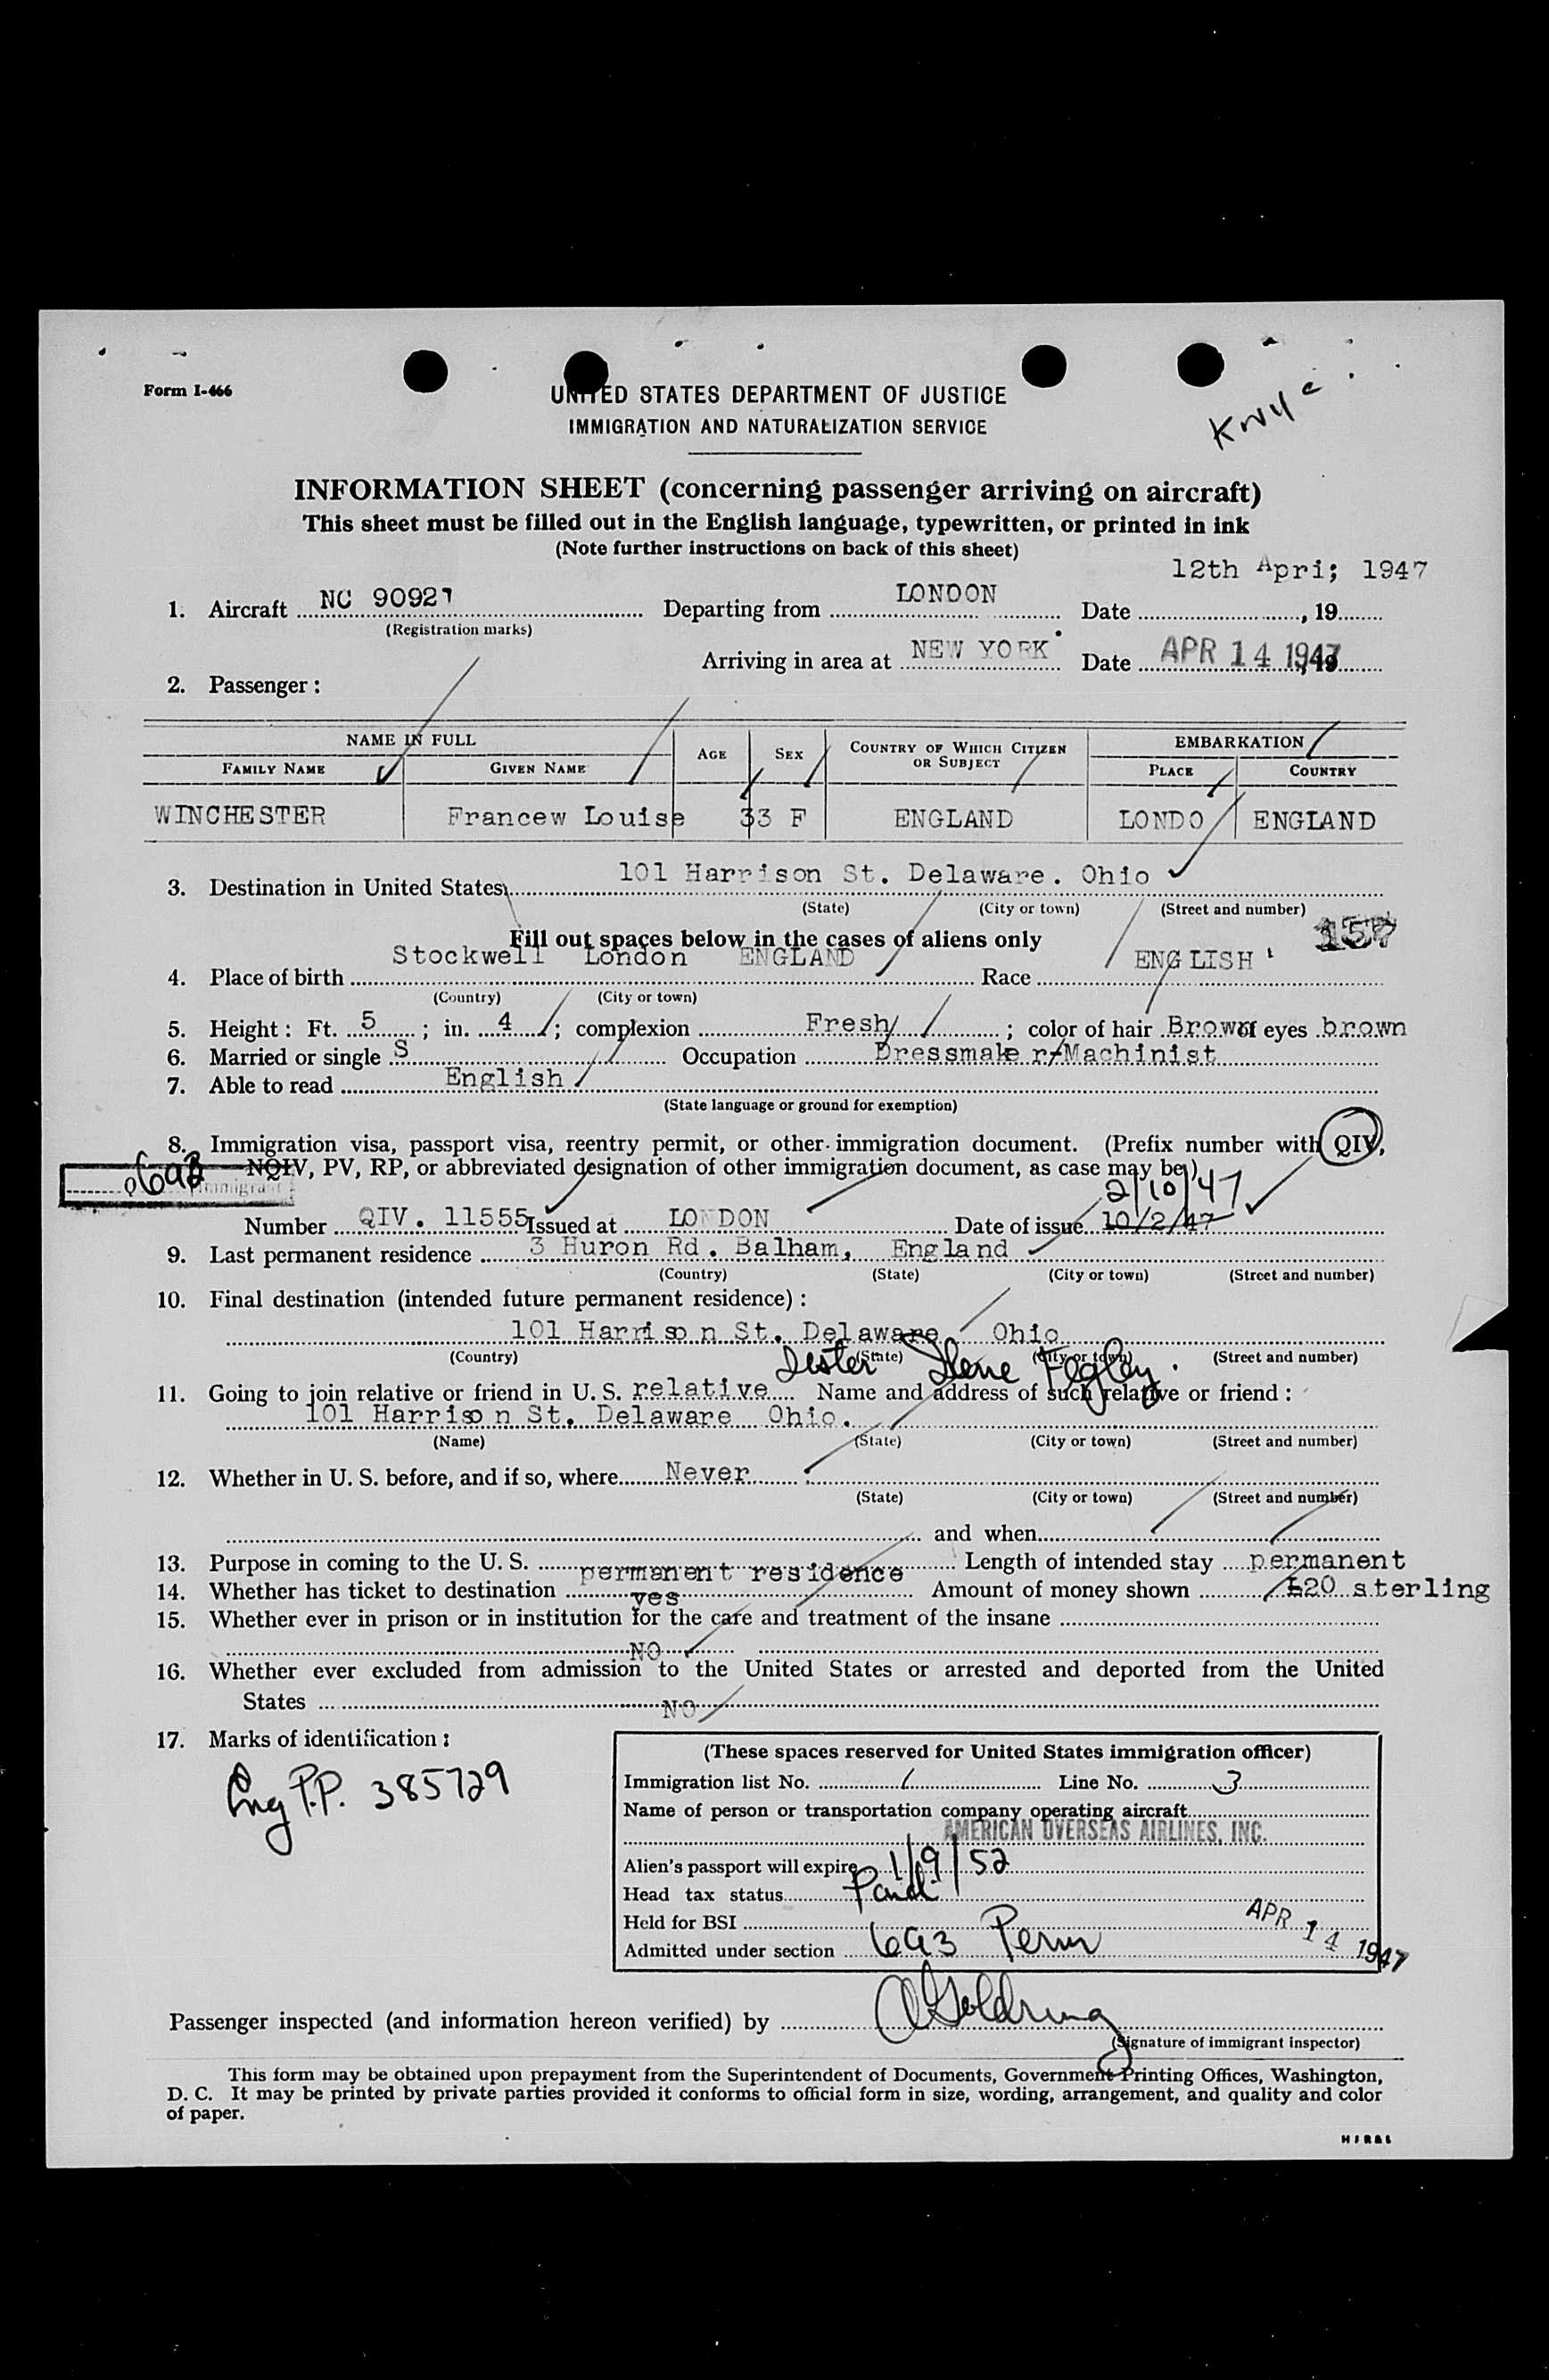 Form I-466
UNITED STATES DEPARTMENT OF JUSTICE
IMMIGRATION AND NATURALIZATION SERVICE
INFORMATION SHEET (concerning passenger arriving on aircraft)
This sheet must be filled out in the English language, typewritten, or printed in ink
(Note further instructions on back of this sheet)
12th Apri; 1947
1. Aircraft NC 90927 Departing from LONDON Date , 19
(Registration marks)
Arriving in area at NEW YORK Date APR 14 1947
2. Passenger:
NAME IN FULL AGE SEX COUNTRY OF WHICH CITIZEN OR SUBJECT EMBARKATION
FAMILY NAME GIVEN NAME PLACE COUNTRY
WINCHESTER Francew Louise 33 F ENGLAND LONDO ENGLAND
3. Destination in United States 101 Harrison St. Delaware. Ohio
(State) (City or town) (Street and number)
157
Fill out spaces below in the cases of aliens only
4. Place of birth Stockwell London ENGLAND Race ENGLISH
(Country) (City or town)
5. Height: Ft. 5; in. 4; complexion Fresh; color of hair Brown eyes brown
6. Married or single S Occupation Dressmaker/Machinist
7. Able to read English
(State language or ground for exemption)
8. Immigration visa, passport visa, reentry permit, or other immigration document. (Prefix number with QIV,
NQIV, PV, RP, or abbreviated designation of other immigration document, as case may be)
2/10/47
Number QIV. 11555 Issued at LONDON Date of issue 10/2/47
9. Last permanent residence 3 Huron Rd. Balham, England
(Country) (State) (City or town) (Street and number)
10. Final destination (intended future permanent residence):
101 Harrison St. Delaware Ohio
(Country) (State) (City or town) (Street and number)
11. Going to join relative or friend in U. S. relative Name and address of such relative or friend:
101 Harrison St. Delaware Ohio.
(Name) (State) (City or town) (Street and number)
12. Whether in U. S. before, and if so, where Never
(State) (City or town) (Street and number)
and when
13. Purpose in coming to the U. S. permanent residence Length of intended stay permanent
14. Whether has ticket to destination yes Amount of money shown £20 sterling
15. Whether ever in prison or in institution for the care and treatment of the insane
NO
16. Whether ever excluded from admission to the United States or arrested and deported from the United
States NO
17. Marks of identification:
Eng P.P. 385729
(These spaces reserved for United States immigration officer)
Immigration list No. 1 Line No. 3
Name of person or transportation company operating aircraft
AMERICAN OVERSEAS AIRLINES, INC.
Alien's passport will expire 1/9/52
Head tax status Paid
Held for BSI
Admitted under section 6a3 Perm APR 14 1947
Passenger inspected (and information hereon verified) by
(Signature of immigrant inspector)
This form may be obtained upon prepayment from the Superintendent of Documents, Government Printing Offices, Washington,
D. C. It may be printed by private parties provided it conforms to official form in size, wording, arrangement, and quality and color
of paper.